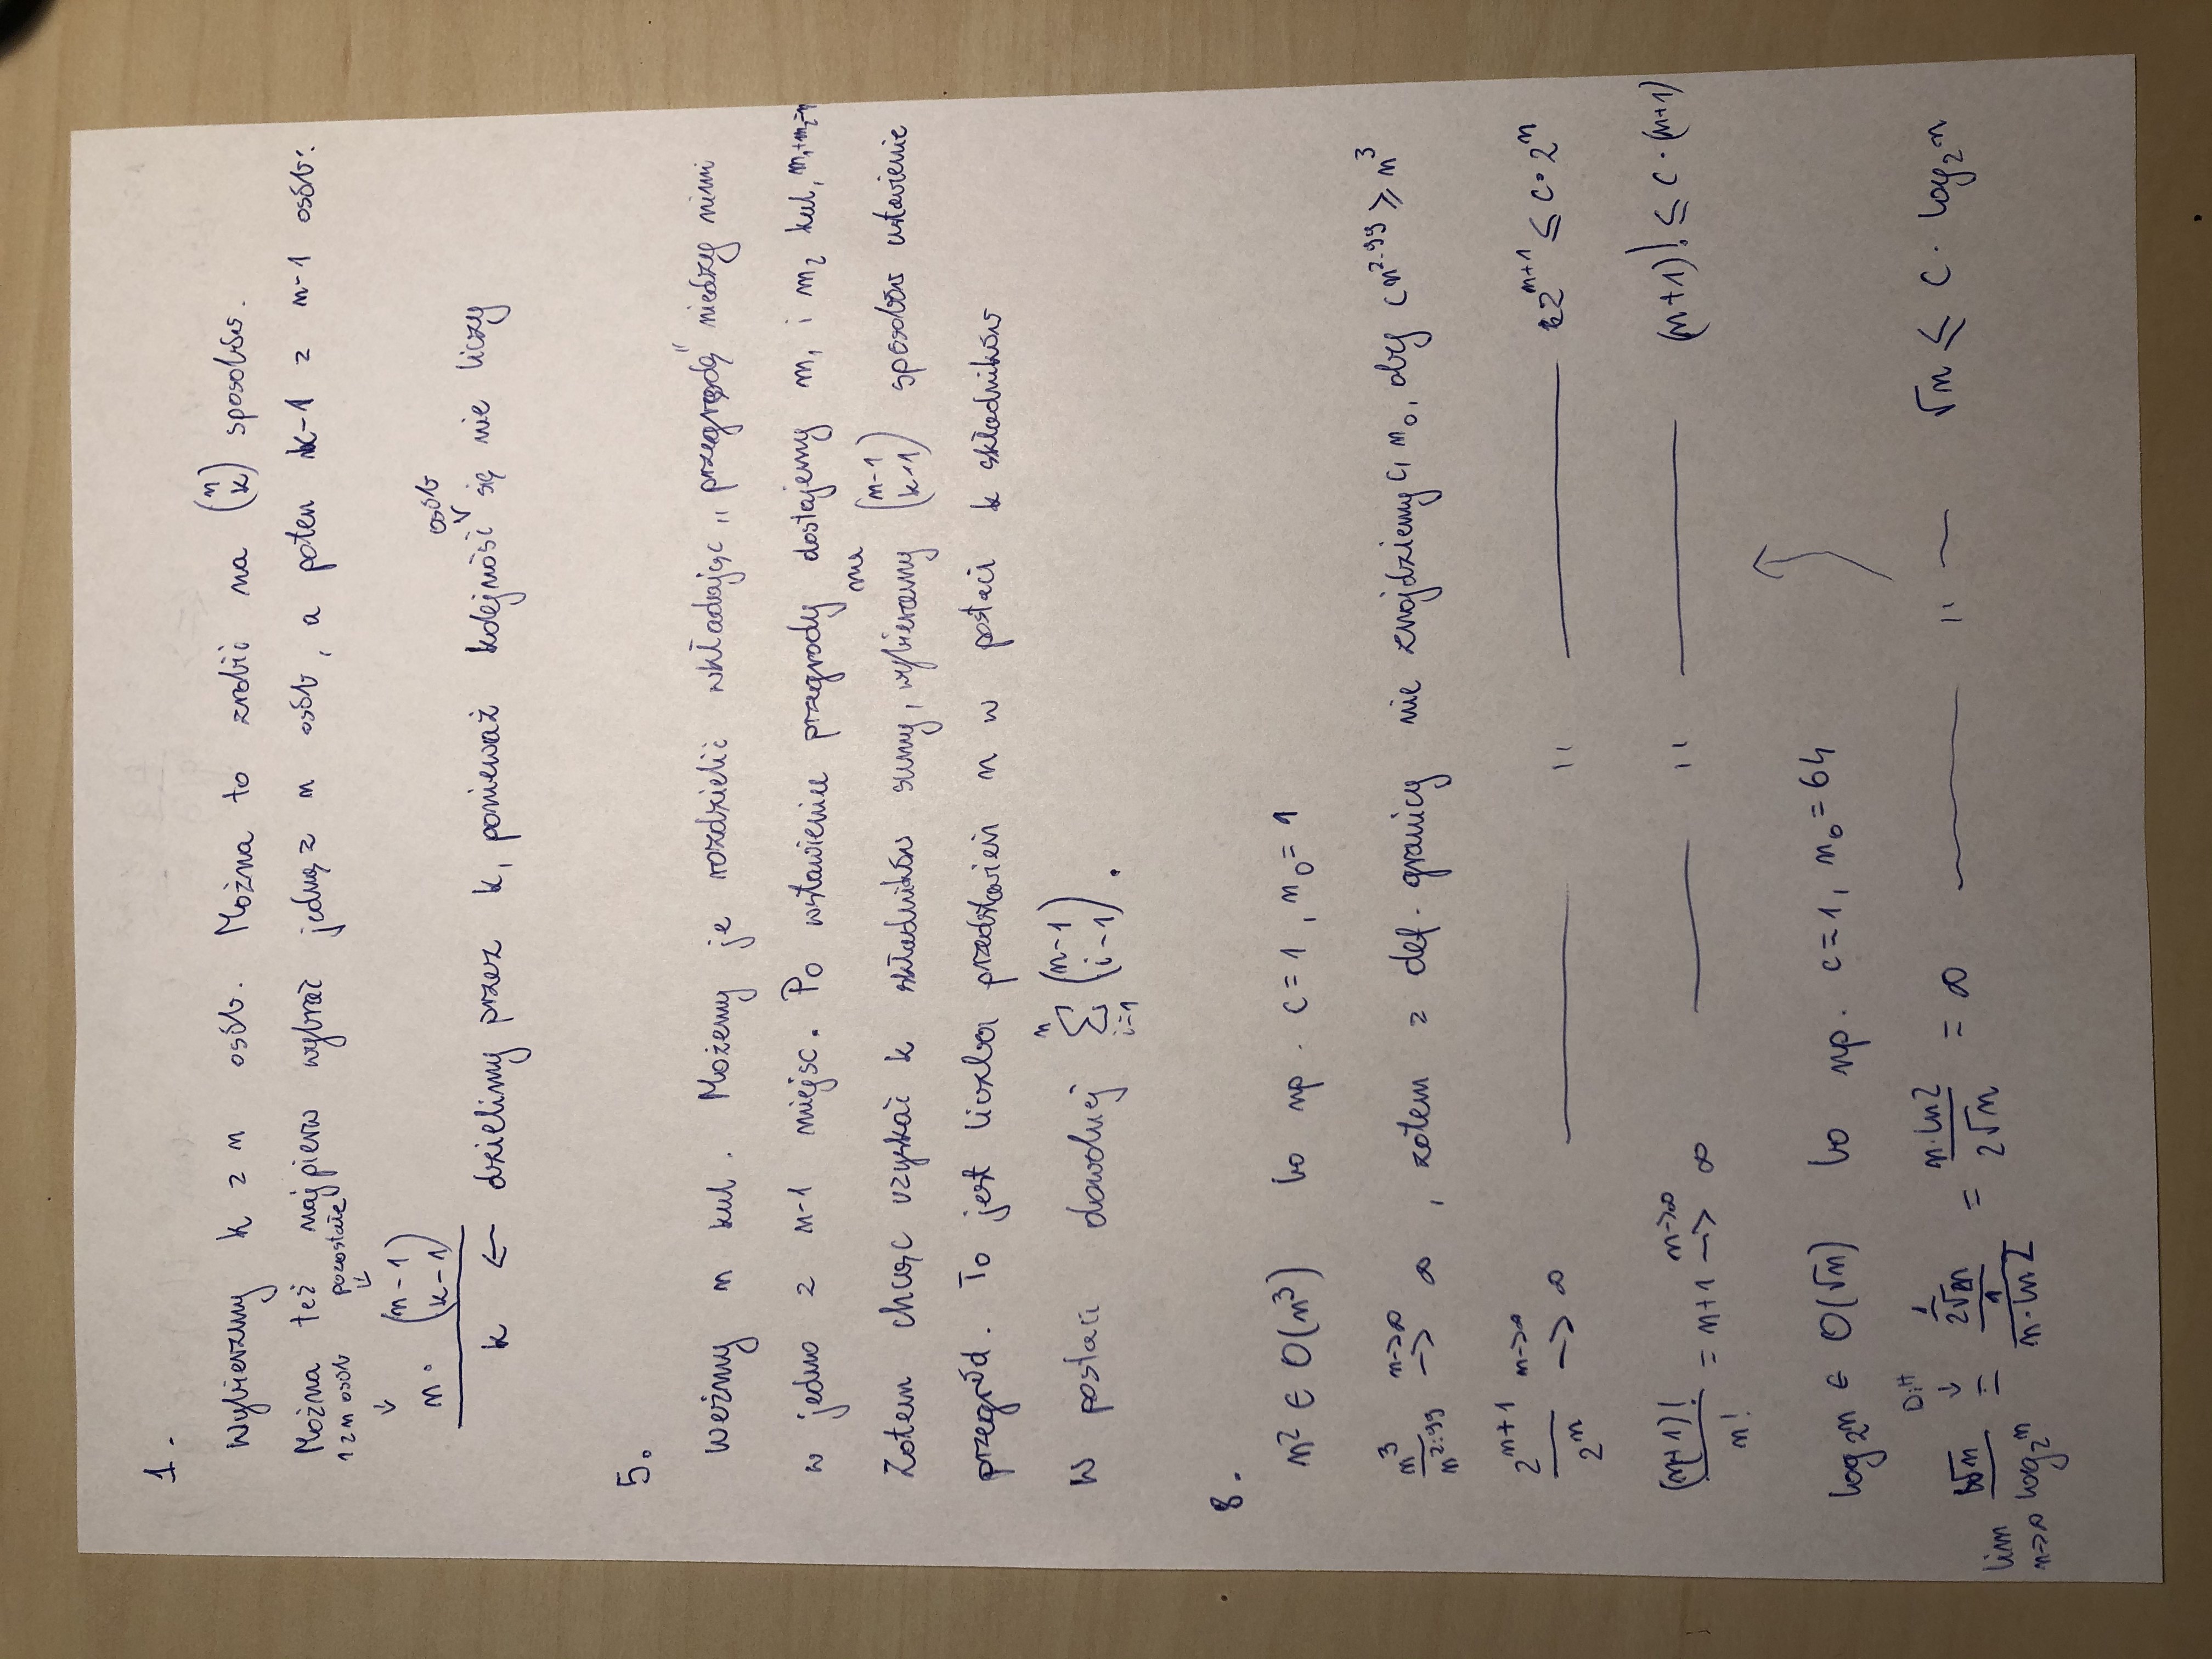 1.
Wybierzmy k z n osób. Można to zrobić na (n k) sposobów.
Można też najpierw wybrać jedną z n osób, a poten k-1 z n-1 osób:
1 z n osób pozostałe
↓ ↓
n · (n-1 k-1)
k ← dzielimy przez k, ponieważ kolejność osób się nie liczy
5.
Weźmy n kul. Możemy je rozdzielić wkładając „przegrodę" niedzy nimi
w jedno z n-1 miejsc. Po wstawieniu przegrody dostajemy m₁ i m₂ kul, m₁+m₂=n
Zatem chcąc uzyskać k składników sumy, wybieramy na (n-1 k-1) sposobów ustawienie
przegród. To jest liczba przedstawień n w postaci k składników
W postaci dowolnej ∑ i=1 n (n-1 i-1).
8.
n² ∈ O(n³) bo np. c=1, n₀=1
n³/n^2.99 n->∞ → ∞, zatem z def. granicy nie znajdziemy c, n₀, aby c n^2.99 ⩾ n³
2^(n+1)/2^n n->∞ → ∞ —— " —— 2^(n+1) ≤ c·2^n
(n+1)!/n! = n+1 n->∞ → ∞ —— " —— (n+1)! ≤ c·(n+1)
log₂n ∈ O(√n) bo np. c=1, n₀=64
D.H ↓
lim n->∞ √n/log₂n = (1/(2√n))/(1/(n·ln2)) = n·ln2/(2√n) = ∞ —— " — √n ≤ c · log₂n